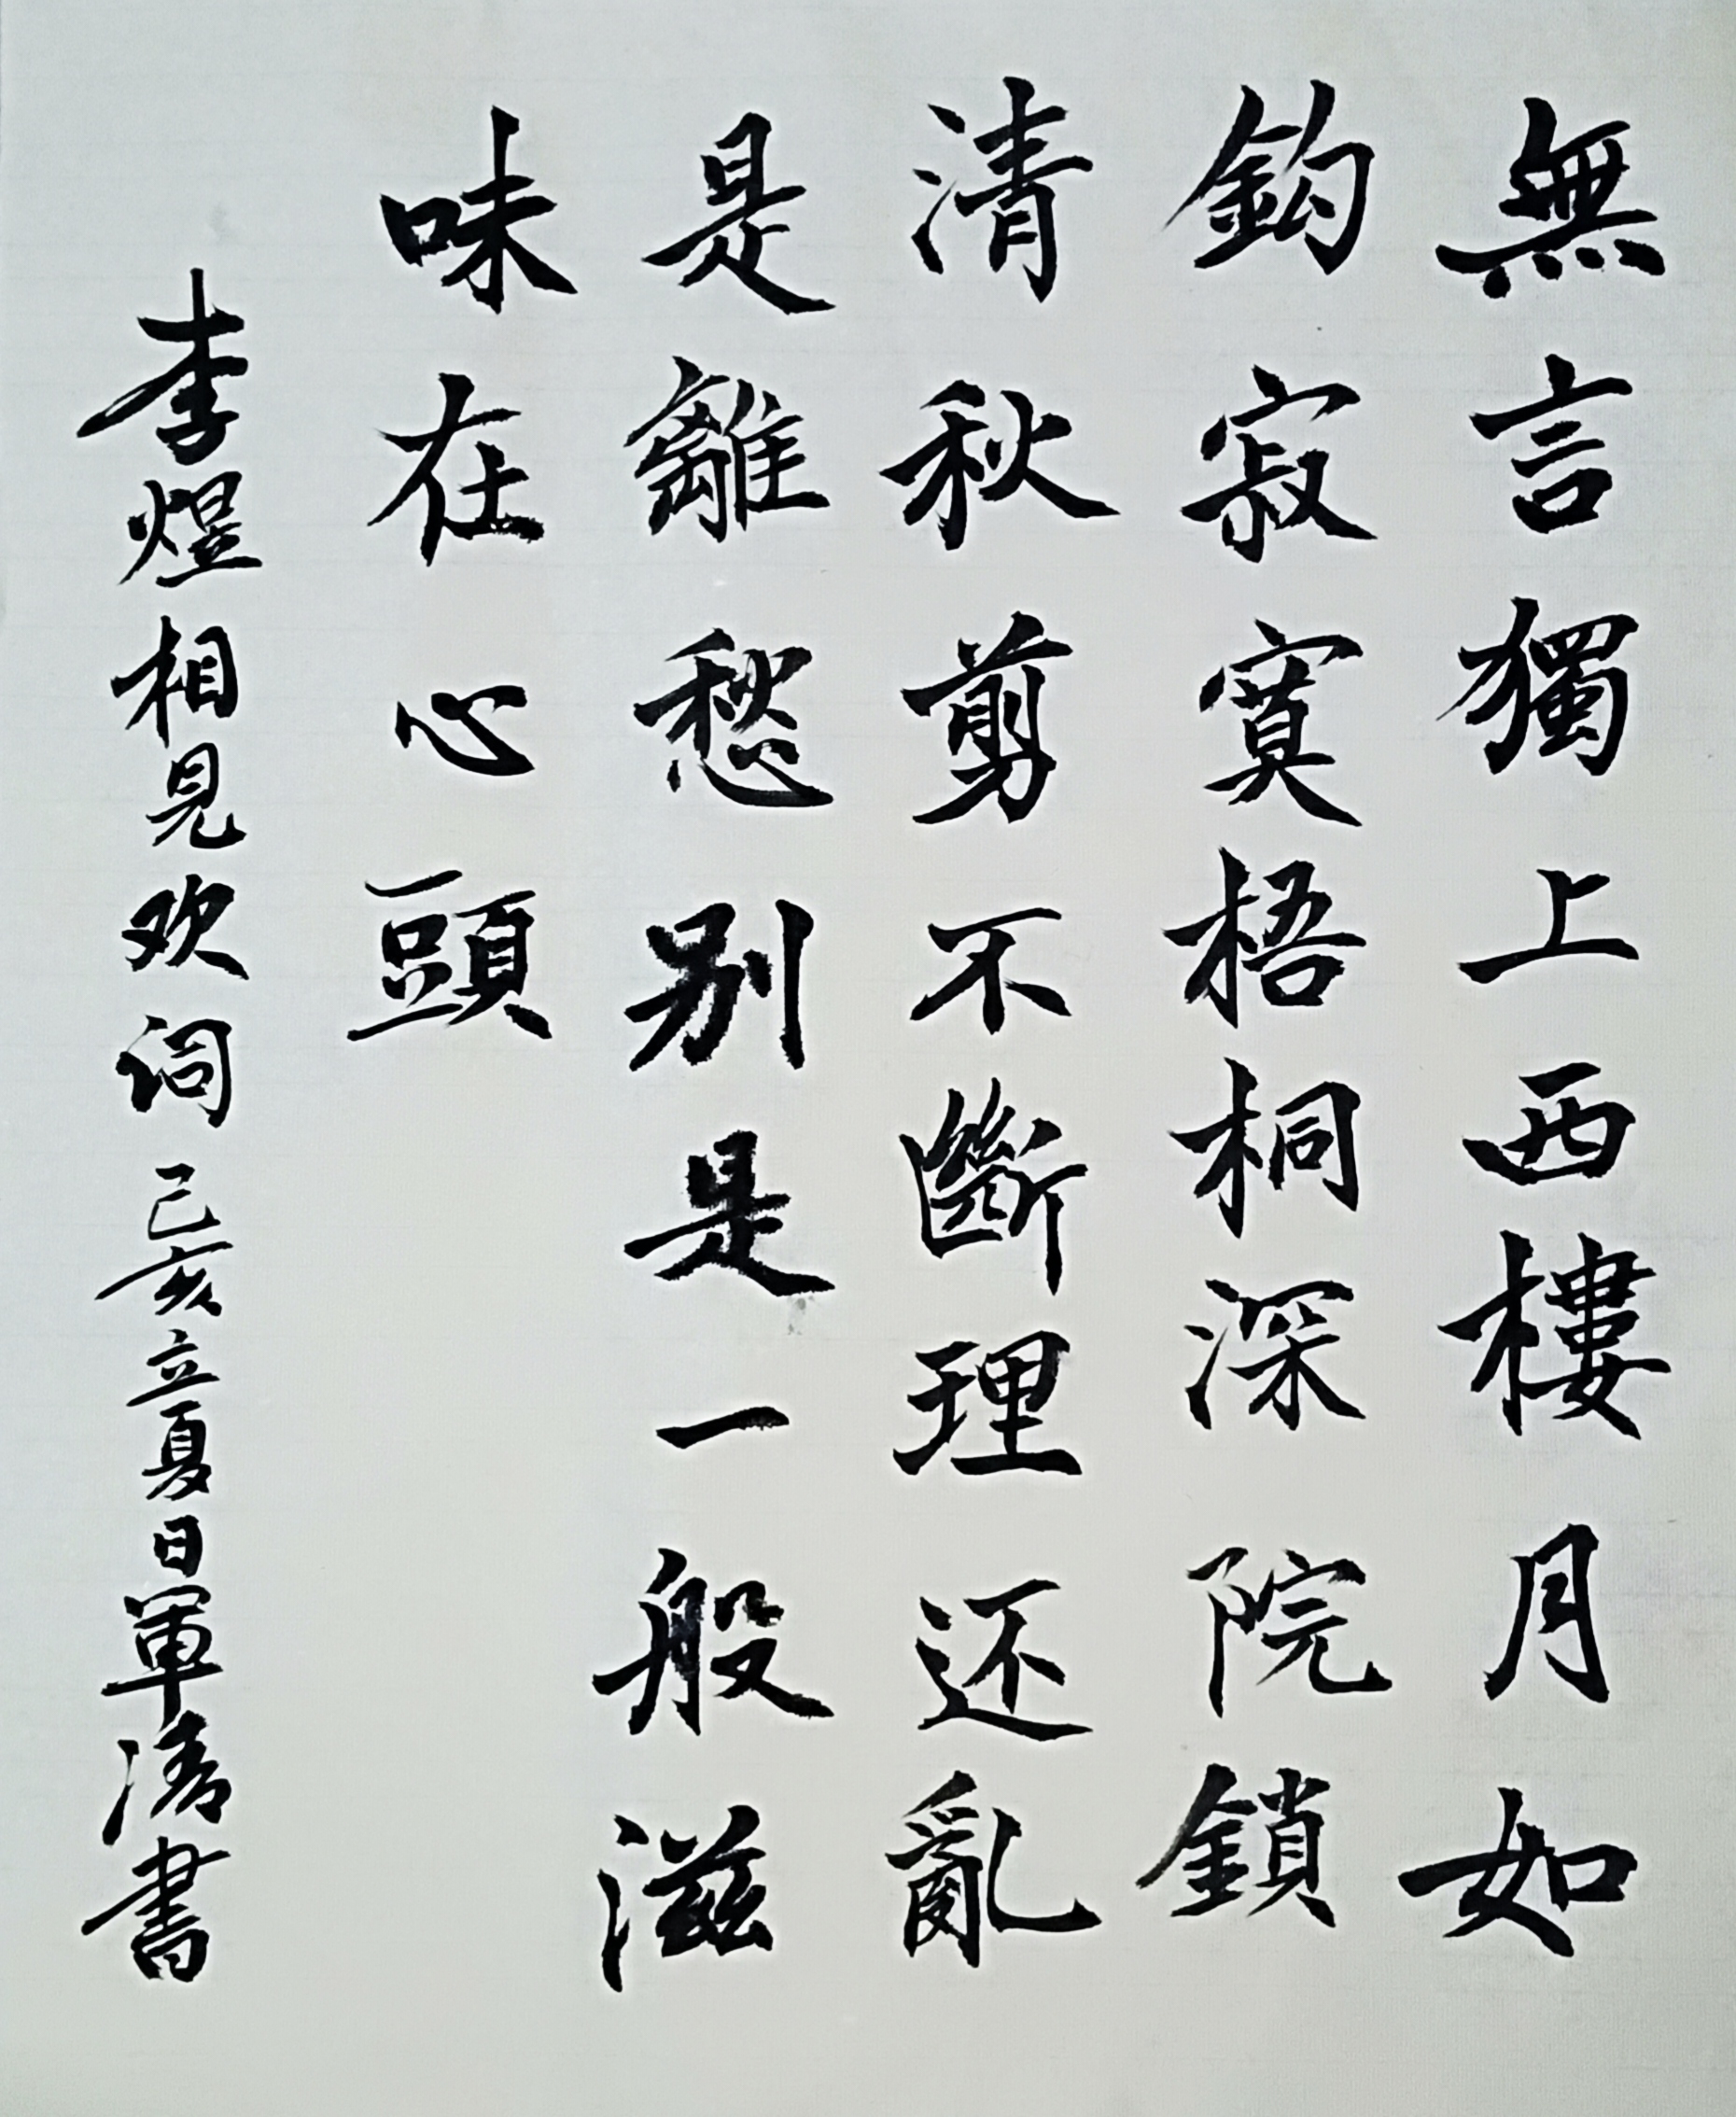 無言獨上西樓月如
鈎寂寞梧桐深院鎖
清秋剪不斷理还亂
是離愁别是一般滋
味在心頭
李煜相見欢词己亥立夏日軍清書